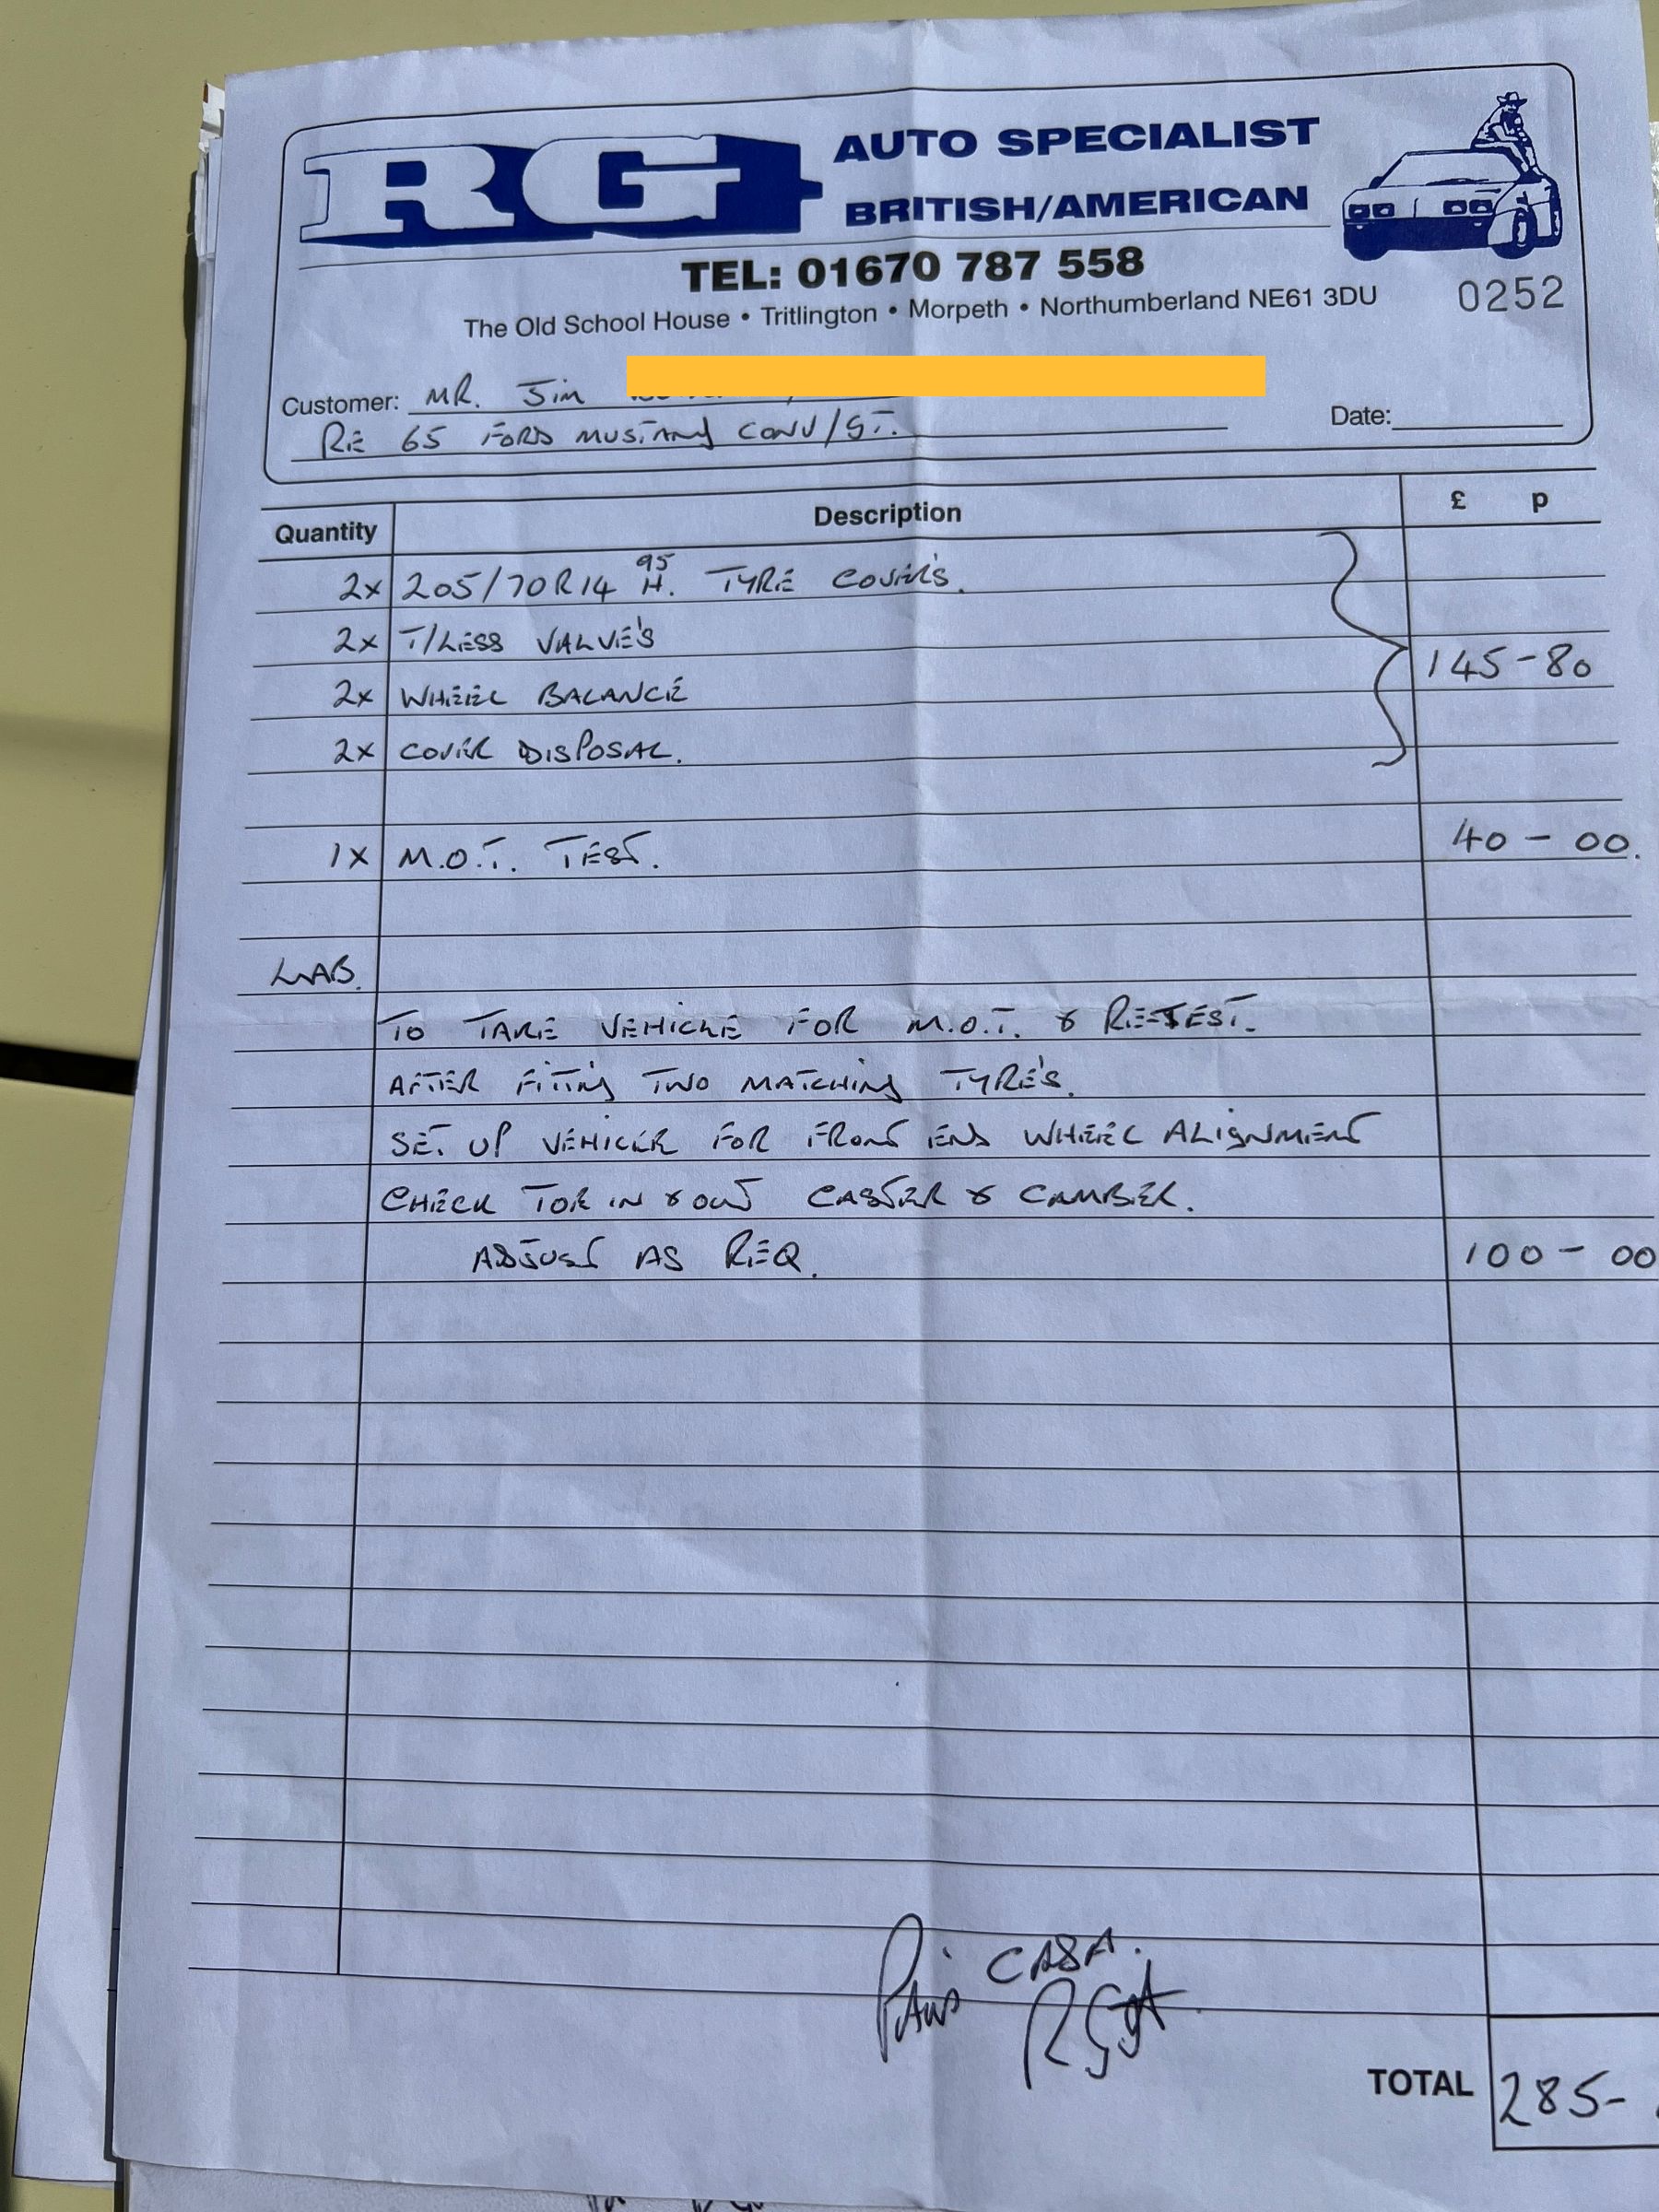 RG AUTO SPECIALIST
BRITISH/AMERICAN
TEL: 01670 787 558
The Old School House • Tritlington • Morpeth • Northumberland NE61 3DU 0252
Customer: MR. Jim
Date:
RE 65 FORD MUSTANG CONV/GT.
Quantity Description £ p
2x 205/70R14 95H. TYRE COVER'S.
2x T/LESS VALVE'S
2x WHEEL BALANCE 145-80
2x COVER DISPOSAL.
1x M.O.T. TEST. 40-00.
LAB.
TO TAKE VEHICLE FOR M.O.T. & RE-TEST.
AFTER FITTING TWO MATCHING TYRE'S.
SET UP VEHICLE FOR FRONT END WHEEL ALIGNMENT
CHECK TOE IN & OUT CASTER & CAMBER.
ADJUST AS REQ. 100-00
PAID CASH.
TOTAL 285-